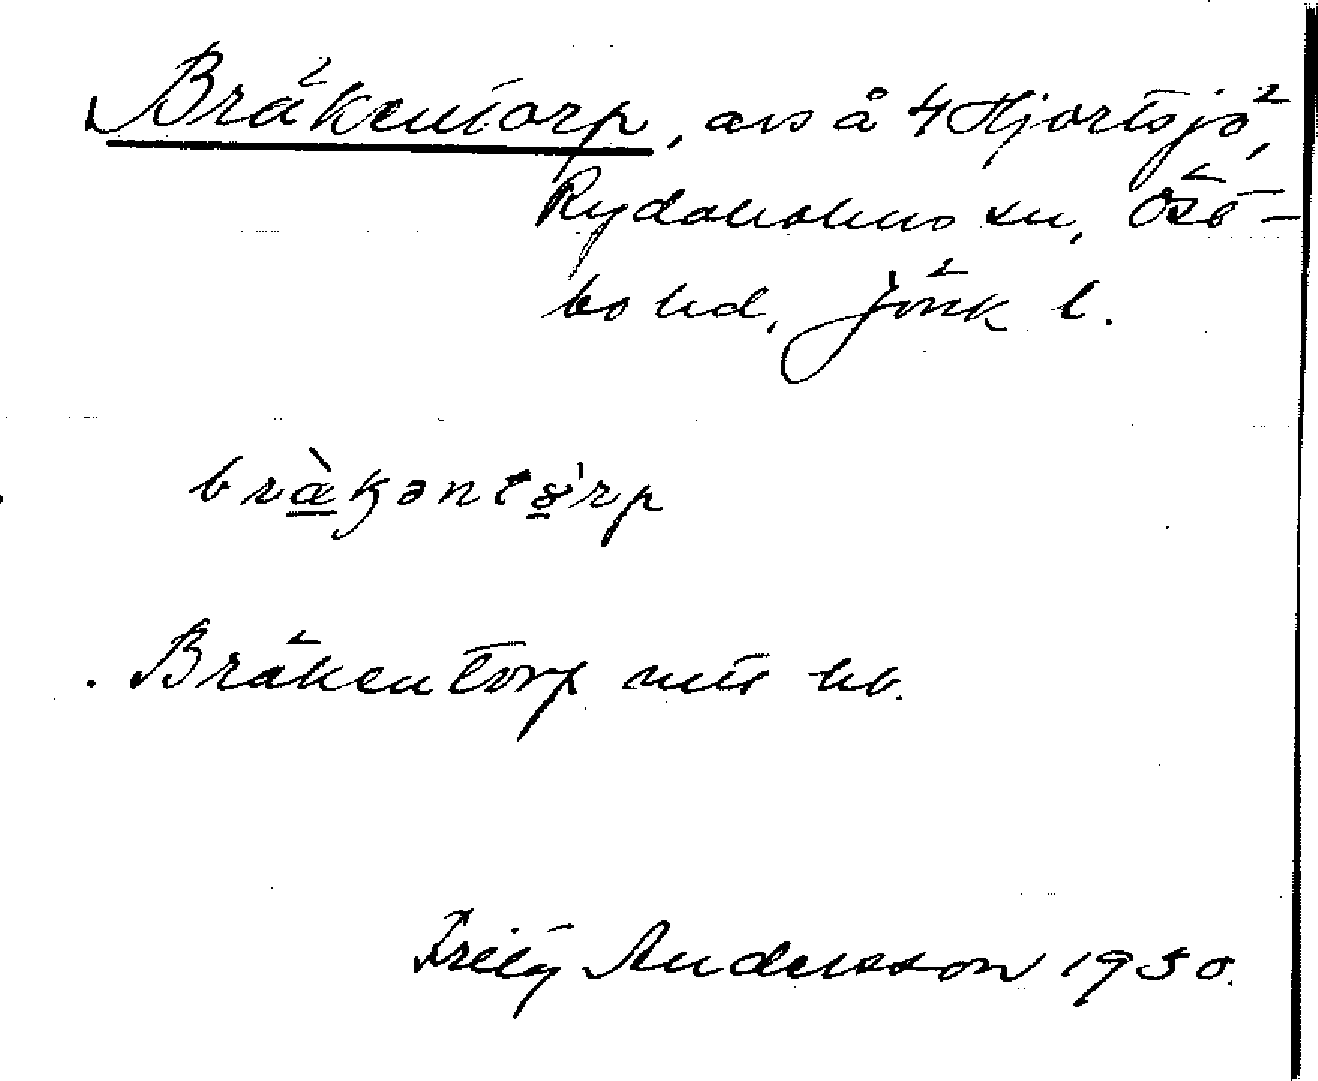 Bräkentorp, avs å 4 Hjortsjö,
Rydaholms sn, Öst-
bo hd, Jönk l.
bræ̀kəntɵ̀rp
Bräkentorp
Fritz Andersson 1930.